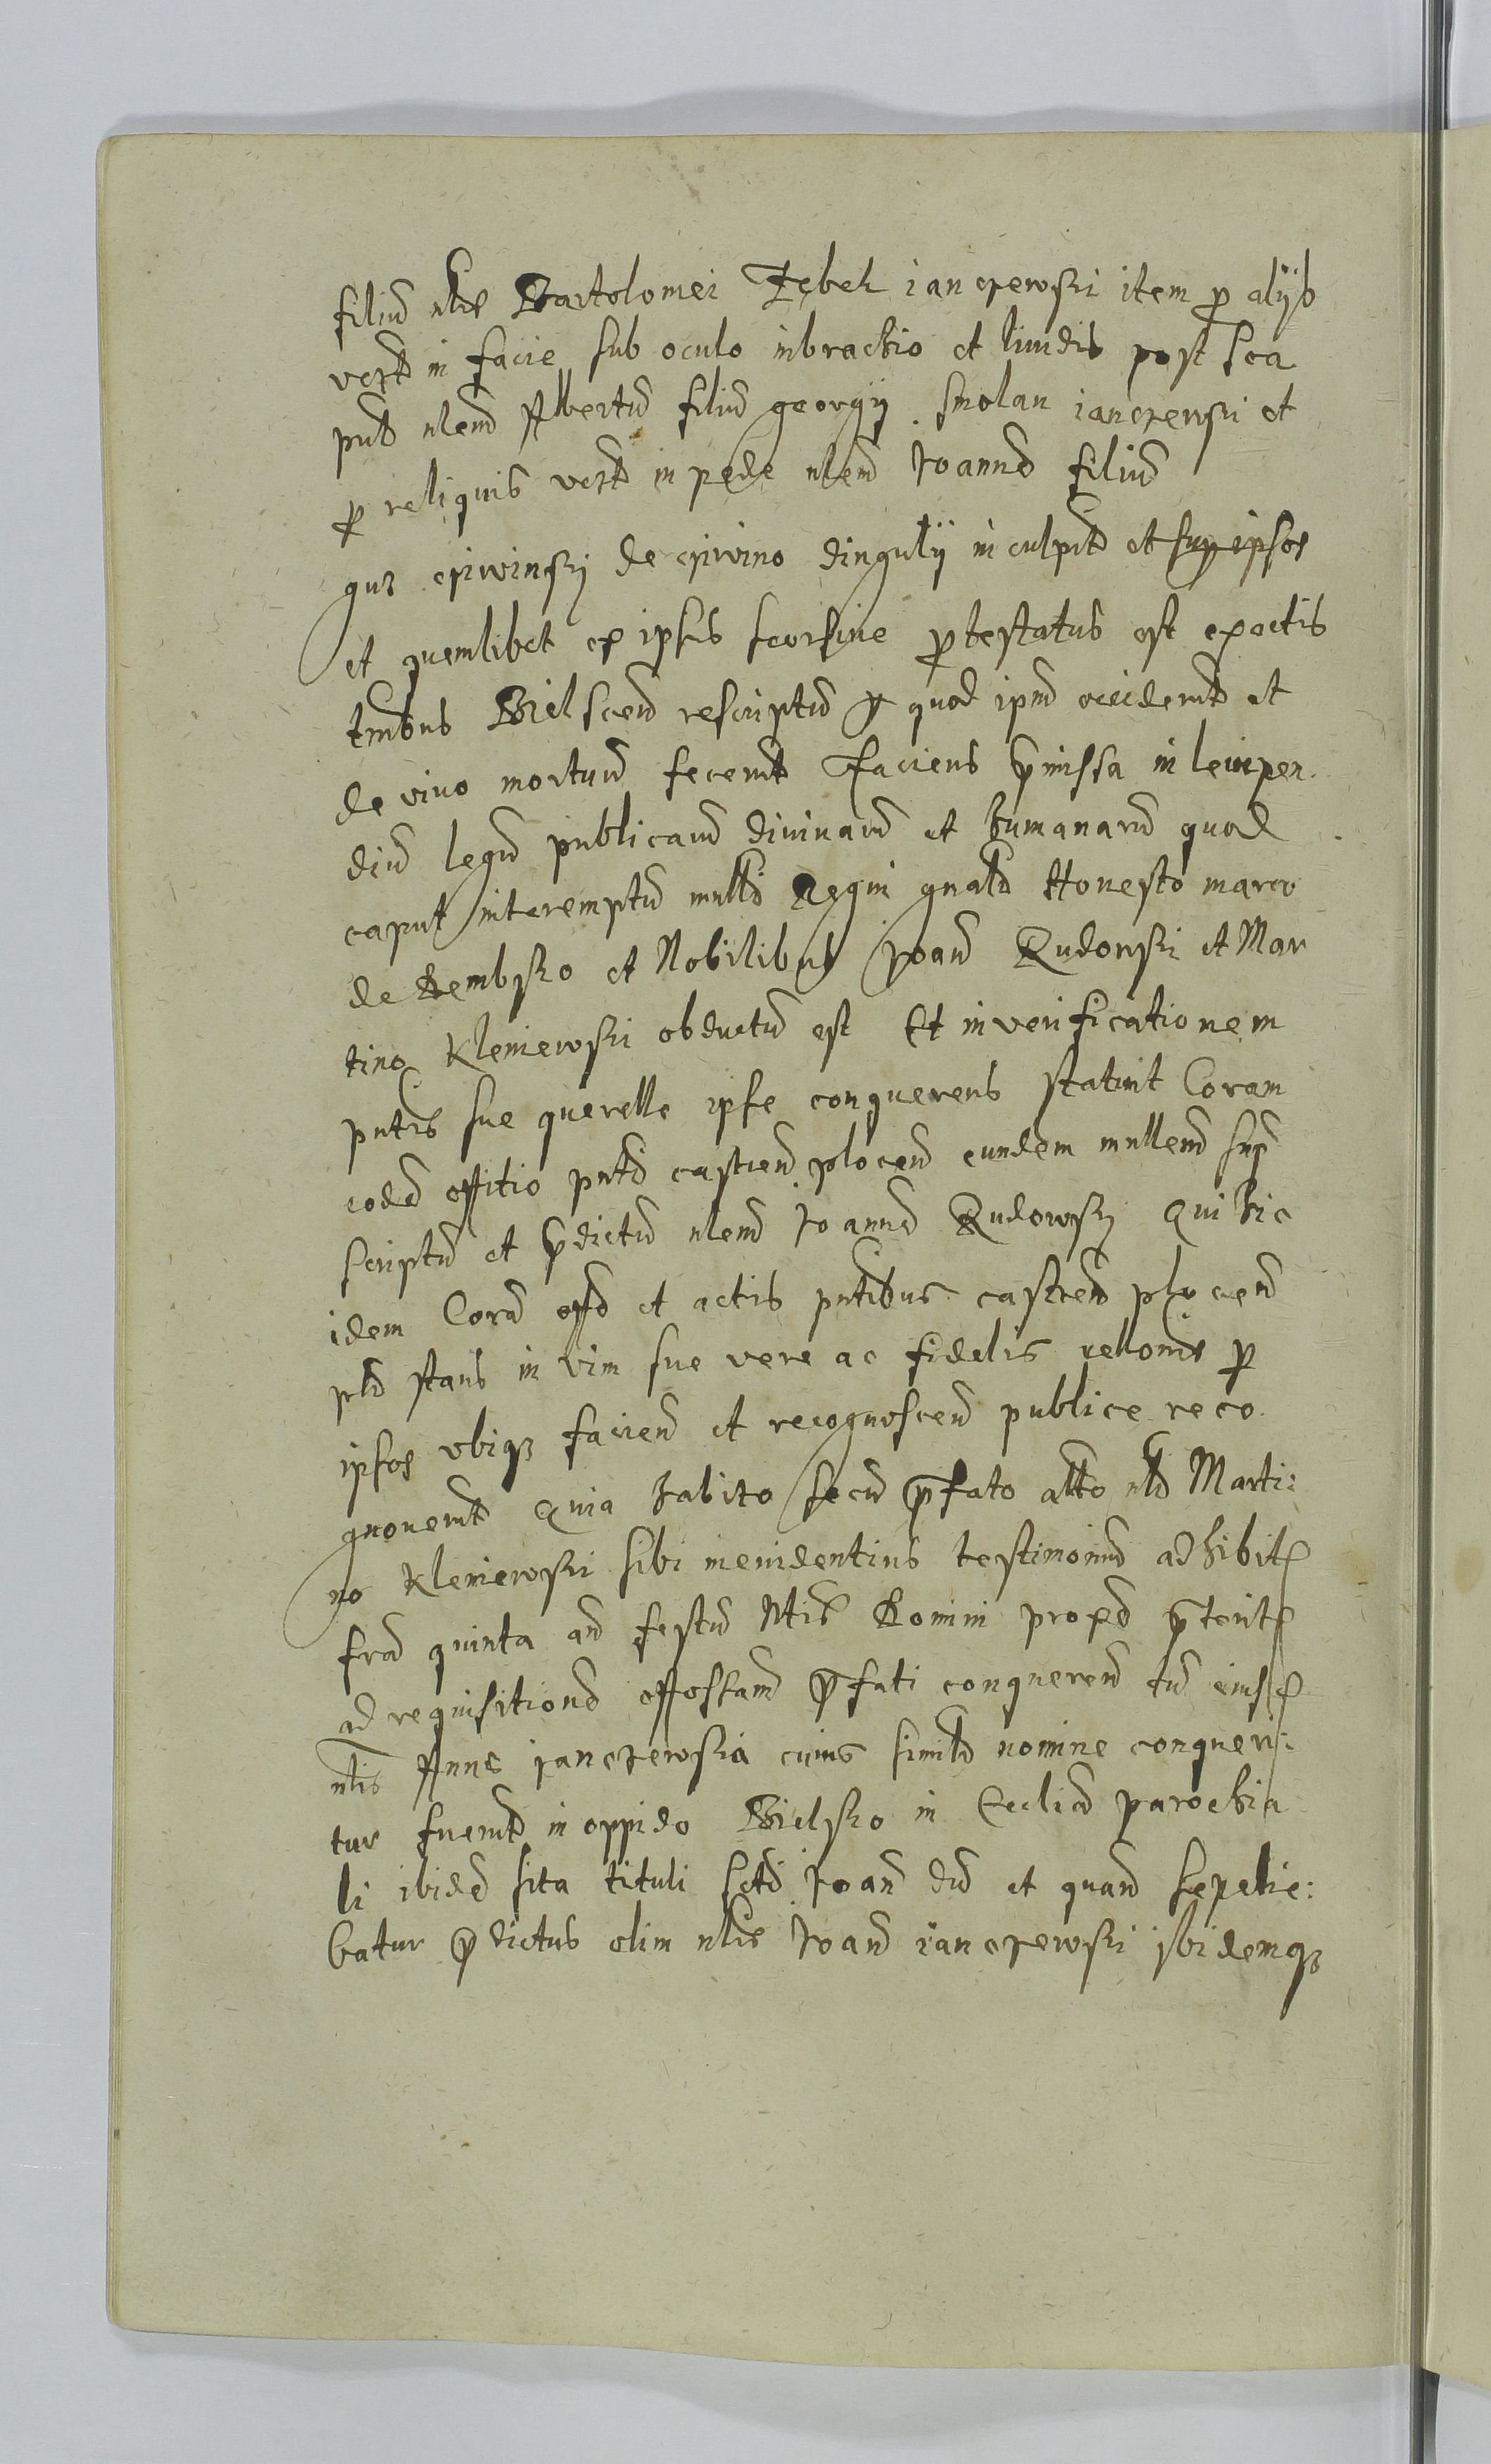 filiu nlis Bartolomei Zębek ianczewski item p alijs
vert in facie sub oculo in brachio et liuidis post sca
put nlem Albertu filiu georgij smolan ianczewski et
p reliquis vert in pede nlem Joanne filium
gus cziwinskj de cziwino dingulij inculpt et sup ipsos
et quemlibet ex ipsis seorsiue ptestatus est ex actis
tentibus Bielscen rescriptu quod ipm occidernt et
de viuo mortuu fecernt Faciens pmissa in leuipen
diu legu publicaru diuinaru et humanaru quod
caput interemptu mnlti Regni gnali Honesto marco
de Dembsko et Nobilibus Joan Rudowski et Mar
tino Kleniewski obductu est Et in verificationem
pntis sue querelle ipse conquerens statuit Coram
eode offitio pnti castren plocen eundem mnllem sup
scriptu et pdictu nlem Joanne Rudowskj qui hic
idem Cora offo et actis pntibus castren plocen
pnli stans in vim sue vere ac fidelis rellonis p
ipsos vbiq faciend et recognoscend publice reco
gnouernt Quia habito secu pfato alto nli Marti:
no Kleniewski sibi in euidentius testimoniu adhibit
fria quinta an festu Ntis Domini proxe pterit
ad requisitione offostam pfati conqueren tu eius
nlis Anne ianczewska cuius simili nomine conqueri:
tur fuernt in oppido Bielsko in Ecclia parochia
li ibide sita tituli Scti Joan du et quand sepelie:
batur pdictus olim nlis Joan ianczewski ibidemq